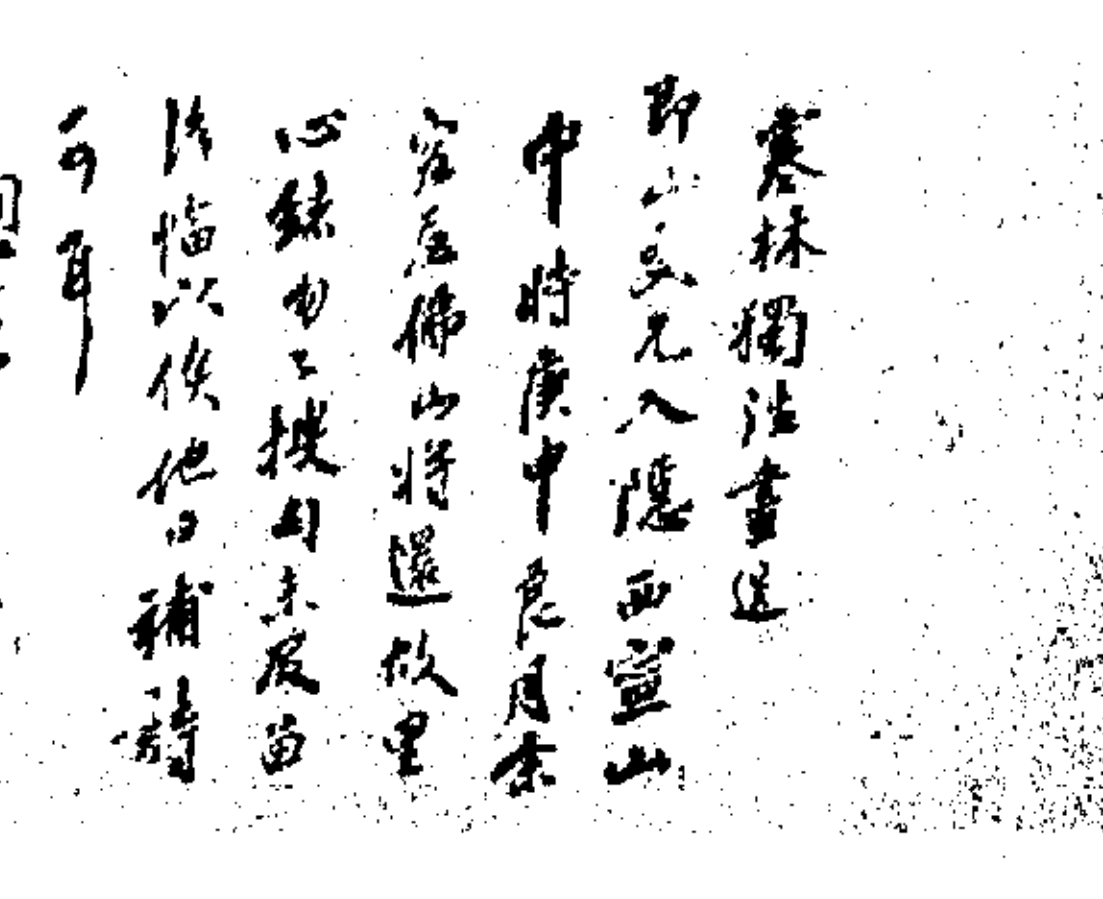 寒林獨往畫送
即山五兄入隱西寧山
中時庚申良月余
寓居佛山將還故里
心緒匆匆搜句未及留
以俟他日補詩
可耳